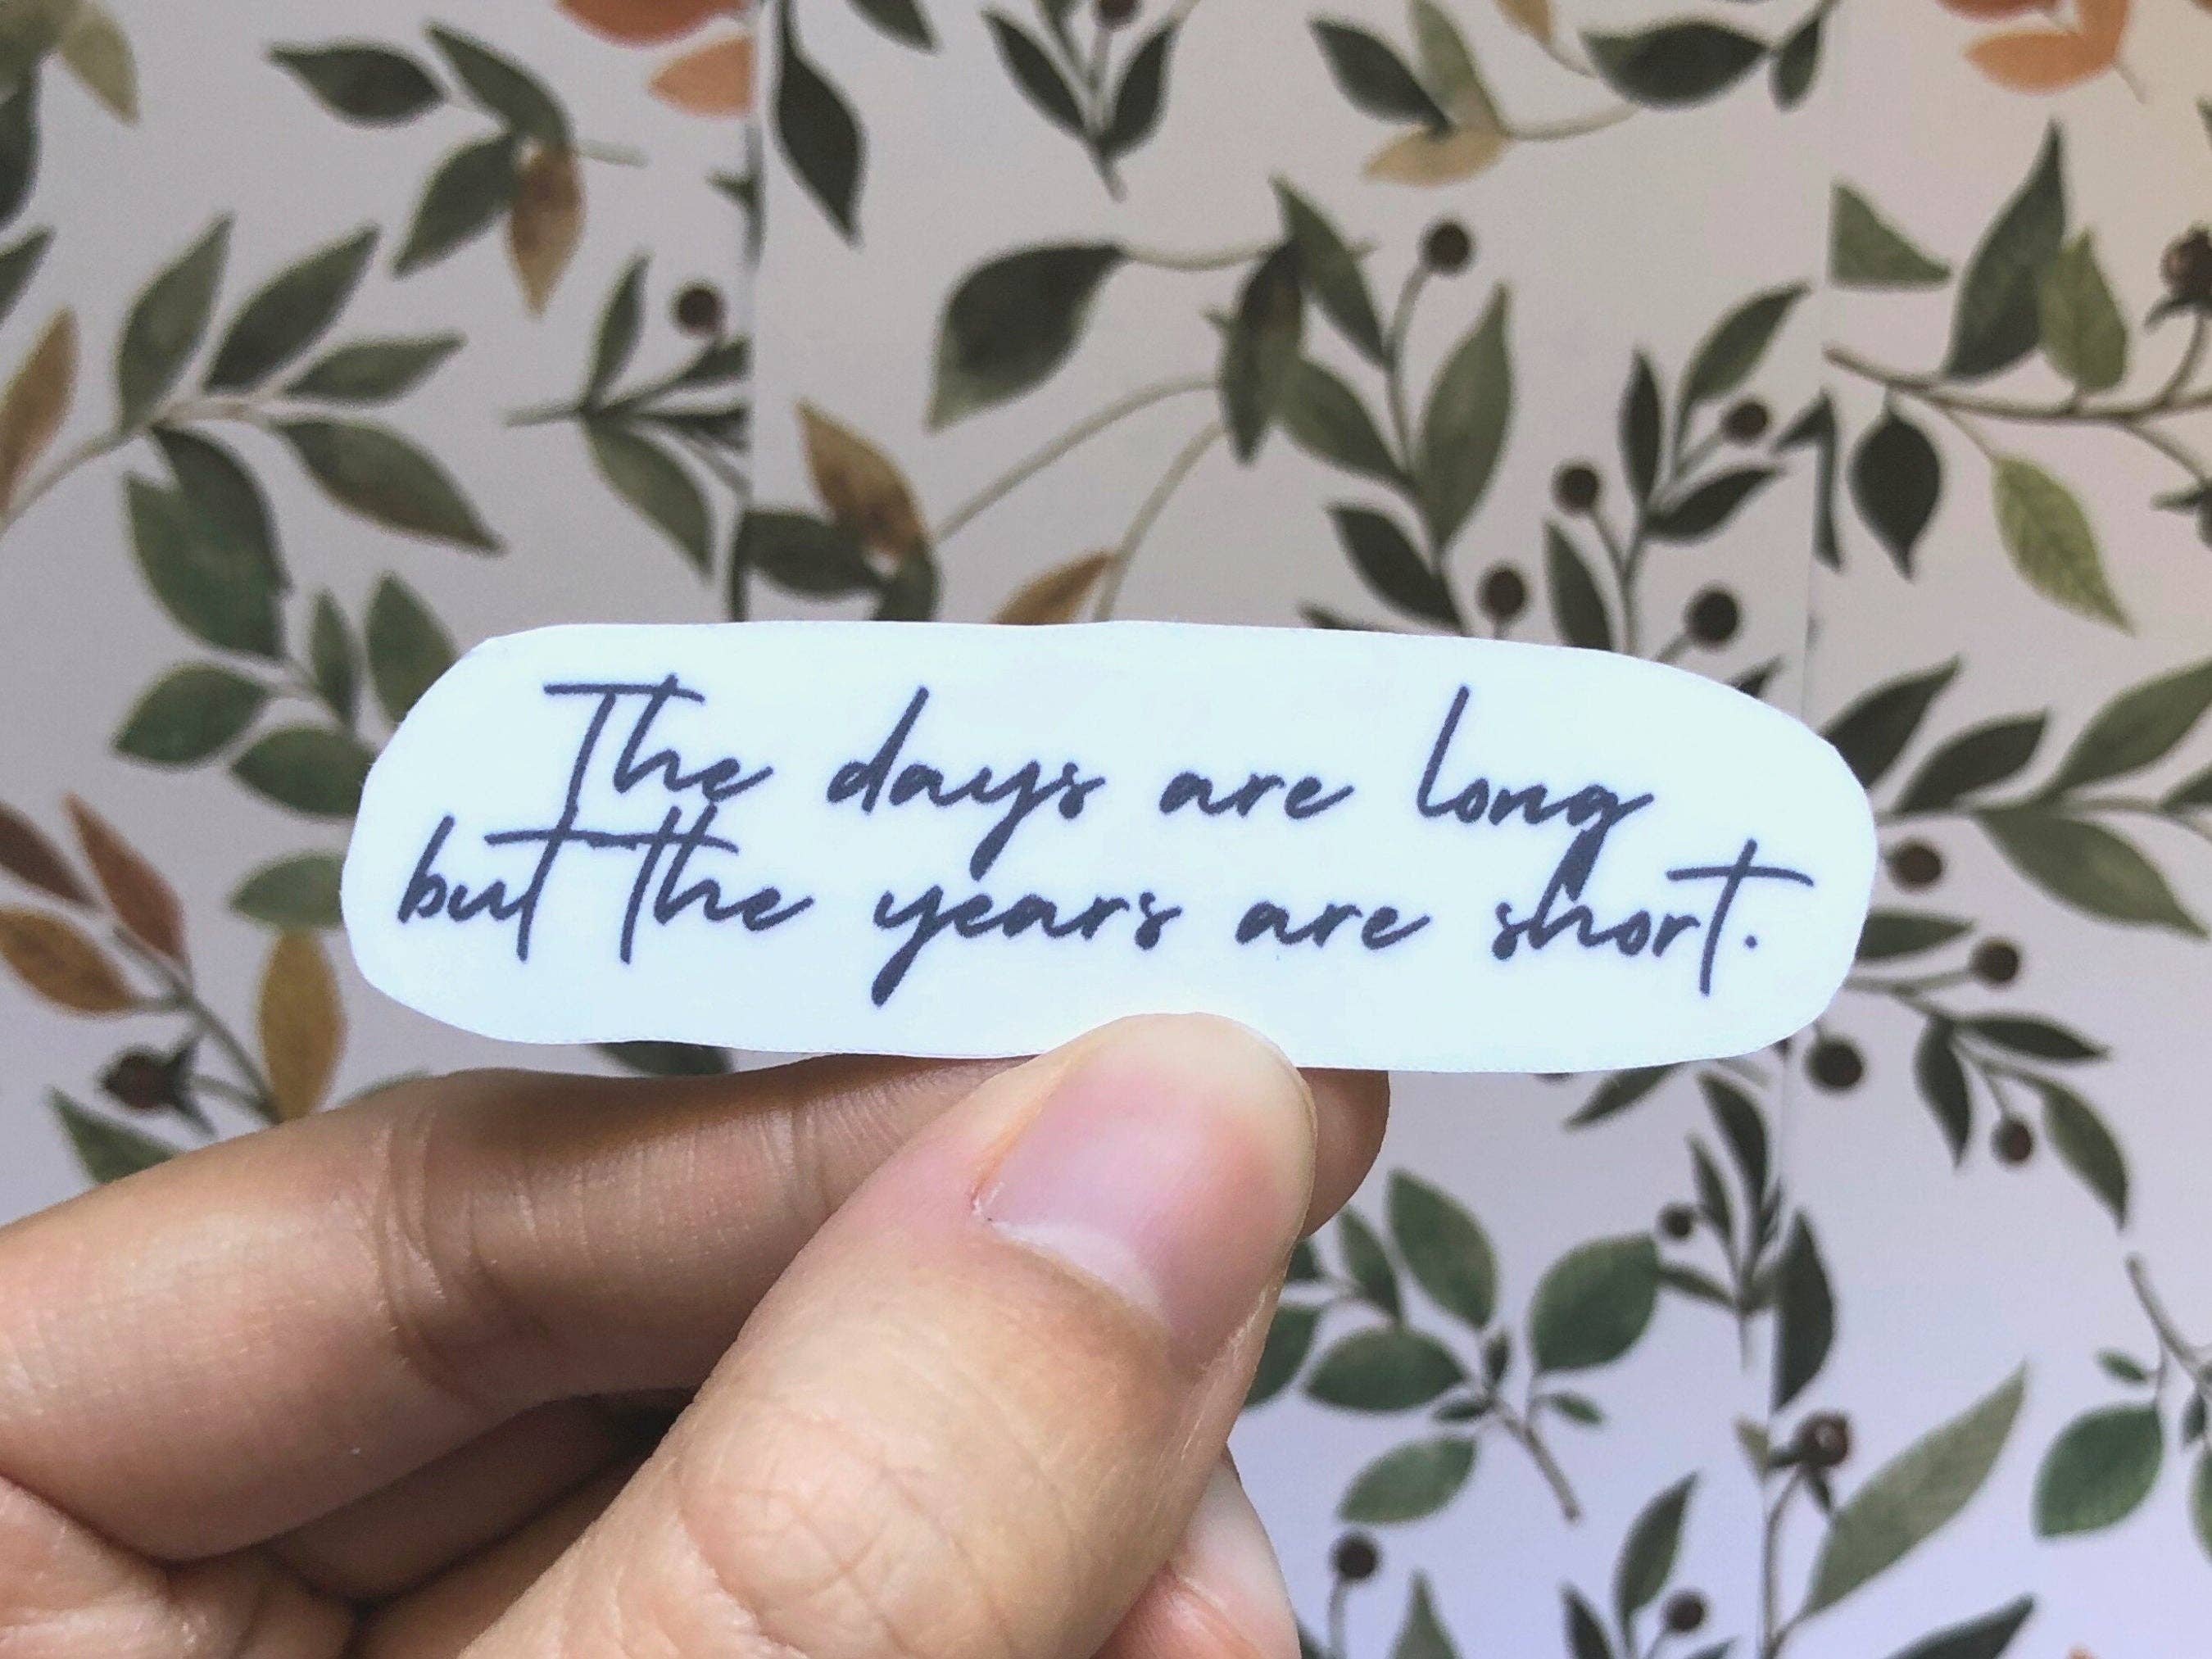 The days are long
but the years are short.